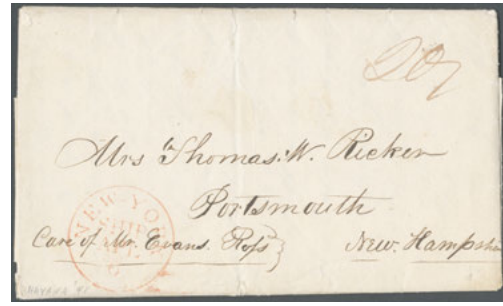 207
Mrs Thomas. W. Ricker
Portsmouth
Care of Mr. Evans. Ross
New. Hampshi
NEW-YO
SHIP
HAVANA